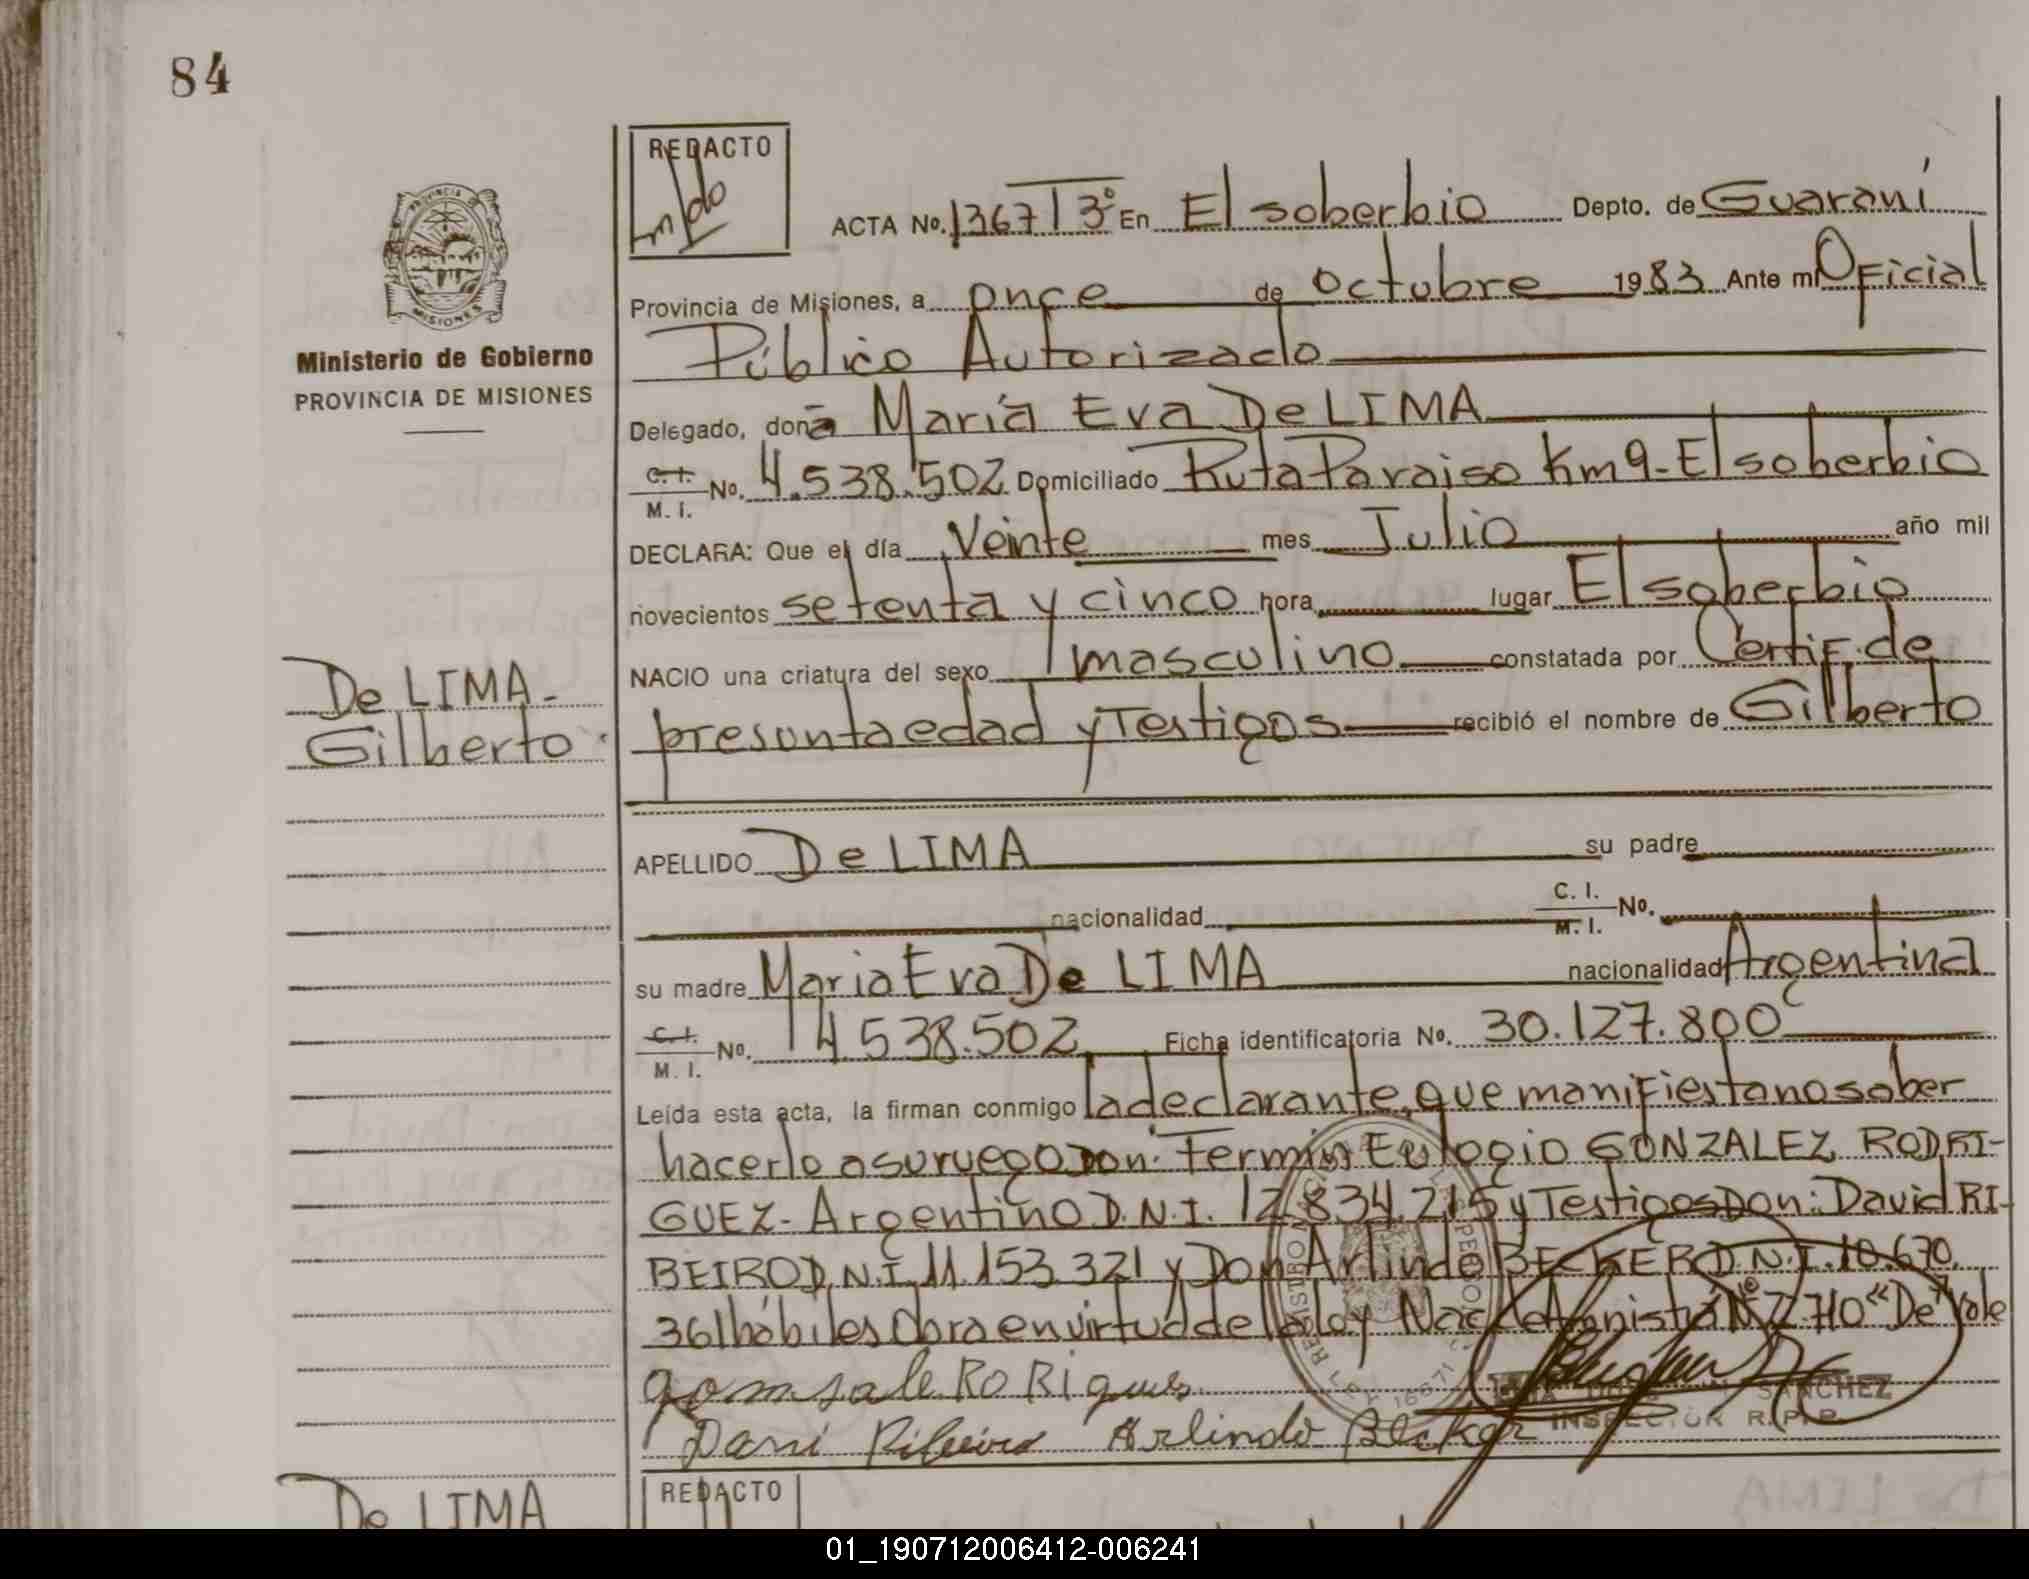 84
REDACTO
ACTA No. 1367 T 3º En El soberbio Depto. de Guaraní
Provincia de Misiones, a once de octubre 1983 Ante mi Oficial
Público Autorizado
Ministerio de Gobierno
PROVINCIA DE MISIONES
Delegado, doña María Eva De LIMA
C. I.
M. I. No. 4.538.502 Domiciliado Ruta Paraiso Km 9 - El soberbio
DECLARA: Que el día Veinte mes Julio año mil
novecientos setenta y cinco hora lugar El soberbio
NACIO una criatura del sexo masculino constatada por Certif. de
De LIMA -
Gilberto
presunta edad y Testigos recibió el nombre de Gilberto
APELLIDO De LIMA su padre
nacionalidad C. I.
M. I. No.
su madre Maria Eva De LIMA nacionalidad Argentina
C. I.
M. I. No. 4.538.502 Ficha identificatoria No. 30.127.800
Leída esta acta, la firman conmigo la declarante, que manifiesta no saber
hacerlo a su ruego Don: Fermin Eulogio GONZALEZ RODRI-
GUEZ - Argentino D.N.I. 12.834.215 y Testigos Don: David RI-
BEIRO D.N.I. 11.153.321 y Don Arlindo BECKER D.N.I. 10.670.
361 hábiles Obra en virtud de la ley Nac de Amnistia Nº 2.710 "De Vale
gomsale RoRigues
SANCHEZ
INSPECTOR R.P.P.
Davi Ribeiro Arlindo Becker
De LIMA
REDACTO
01_190712006412-006241